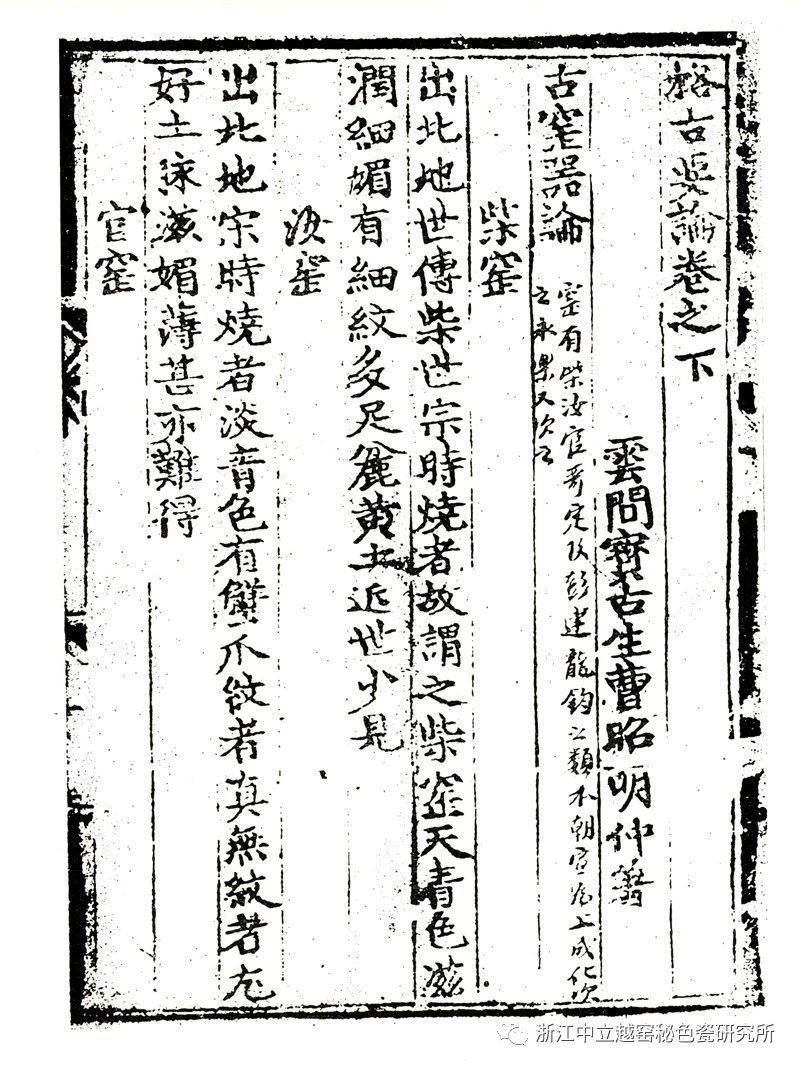 格古要論卷之下
雲間寳古生曹昭明仲著
古窑器論
窑有柴汝官哥定及彭建龍鈞之類本朝宣為上成化次
之永樂又次之
柴窑
出北地世傳柴世宗時燒者故謂之柴窑天青色滋
潤細媚有細紋多足麄黄土近世少見
汝窑
出北地宋時燒者淡青色有蟹爪紋者真無紋者尤
好土脉滋媚薄甚亦難得
官窑
浙江中立越窑秘色瓷研究所